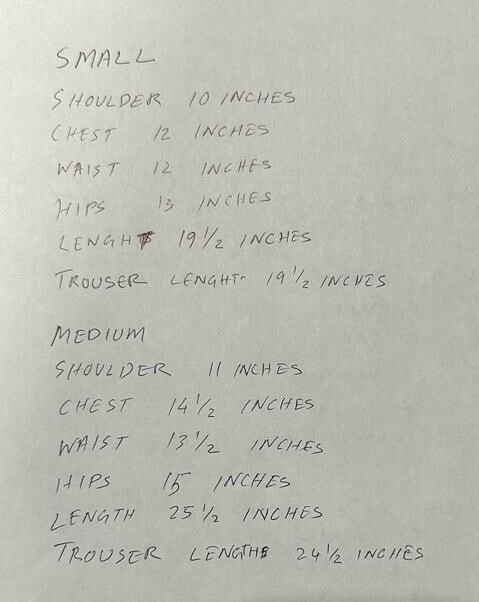 SMALL
SHOULDER 10 INCHES
CHEST 12 INCHES
WAIST 12 INCHES
HIPS 13 INCHES
LENGHT 19 1/2 INCHES
TROUSER LENGHT 19 1/2 INCHES
MEDIUM
SHOULDER 11 INCHES
CHEST 14 1/2 INCHES
WAIST 13 1/2 INCHES
HIPS 15 INCHES
LENGTH 25 1/2 INCHES
TROUSER LENGTH 24 1/2 INCHES